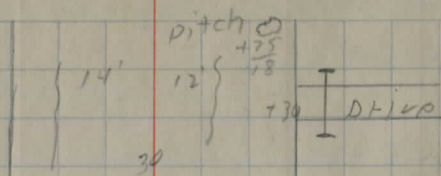 Pitch
+25
18
14'
12'
+30
Drive
30